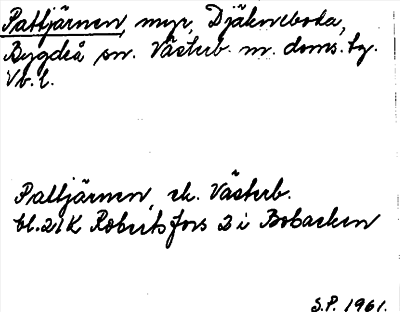 Pattjärnen, myr, Djäkneboda,
Bygdeå sn. Västerb. m. doms. tg.
Vb. l.
Pattjärnen, ek. Västerb.
bl. 21K Robertsfors 2 i Bobacken
S.P. 1961.